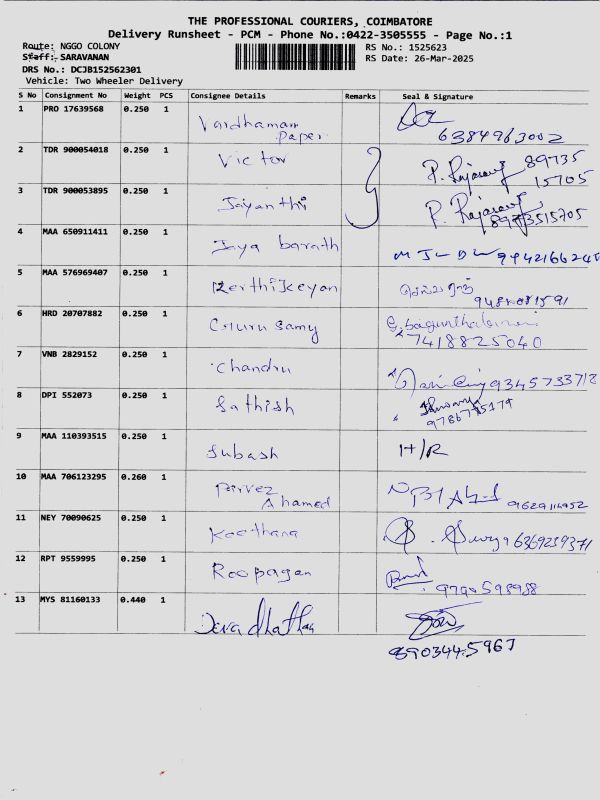 THE PROFESSIONAL COURIERS, COIMBATORE
Delivery Runsheet - PCM - Phone No.:0422-3505555 - Page No.:1
Route: NGGO COLONY
RS No.: 1525623
Staff: SARAVANAN
RS Date: 26-Mar-2025
DRS No.: DCJB152562301
Vehicle: Two Wheeler Delivery
S No Consignment No Weight PCS Consignee Details Remarks Seal & Signature
1 PRO 17639568 0.250 1 Vardhaman
Paper 6384963002
2 TDR 900054018 0.250 1 Victor P. Rajasary 89735
15705
3 TDR 900053895 0.250 1 Jayanthi P. Rajasary
8973515705
4 MAA 650911411 0.250 1 Jaya barath
5 MAA 576969407 0.250 1 Kerthikeyan
6 HRD 20707882 0.250 1 Guru Samy
7418825040
7 VNB 2829152 0.250 1 Chandru 9345733712
8 DPI 552073 0.250 1 Sathish
9 MAA 110393515 0.250 1 Subash H/R
10 MAA 706123295 0.260 1 Parvez
Ahamed
11 NEY 70090625 0.250 1 Keethana S. Surya 6369239371
12 RPT 9559995 0.250 1 Roopagan
9790598988
13 MYS 81160133 0.440 1
8903445967